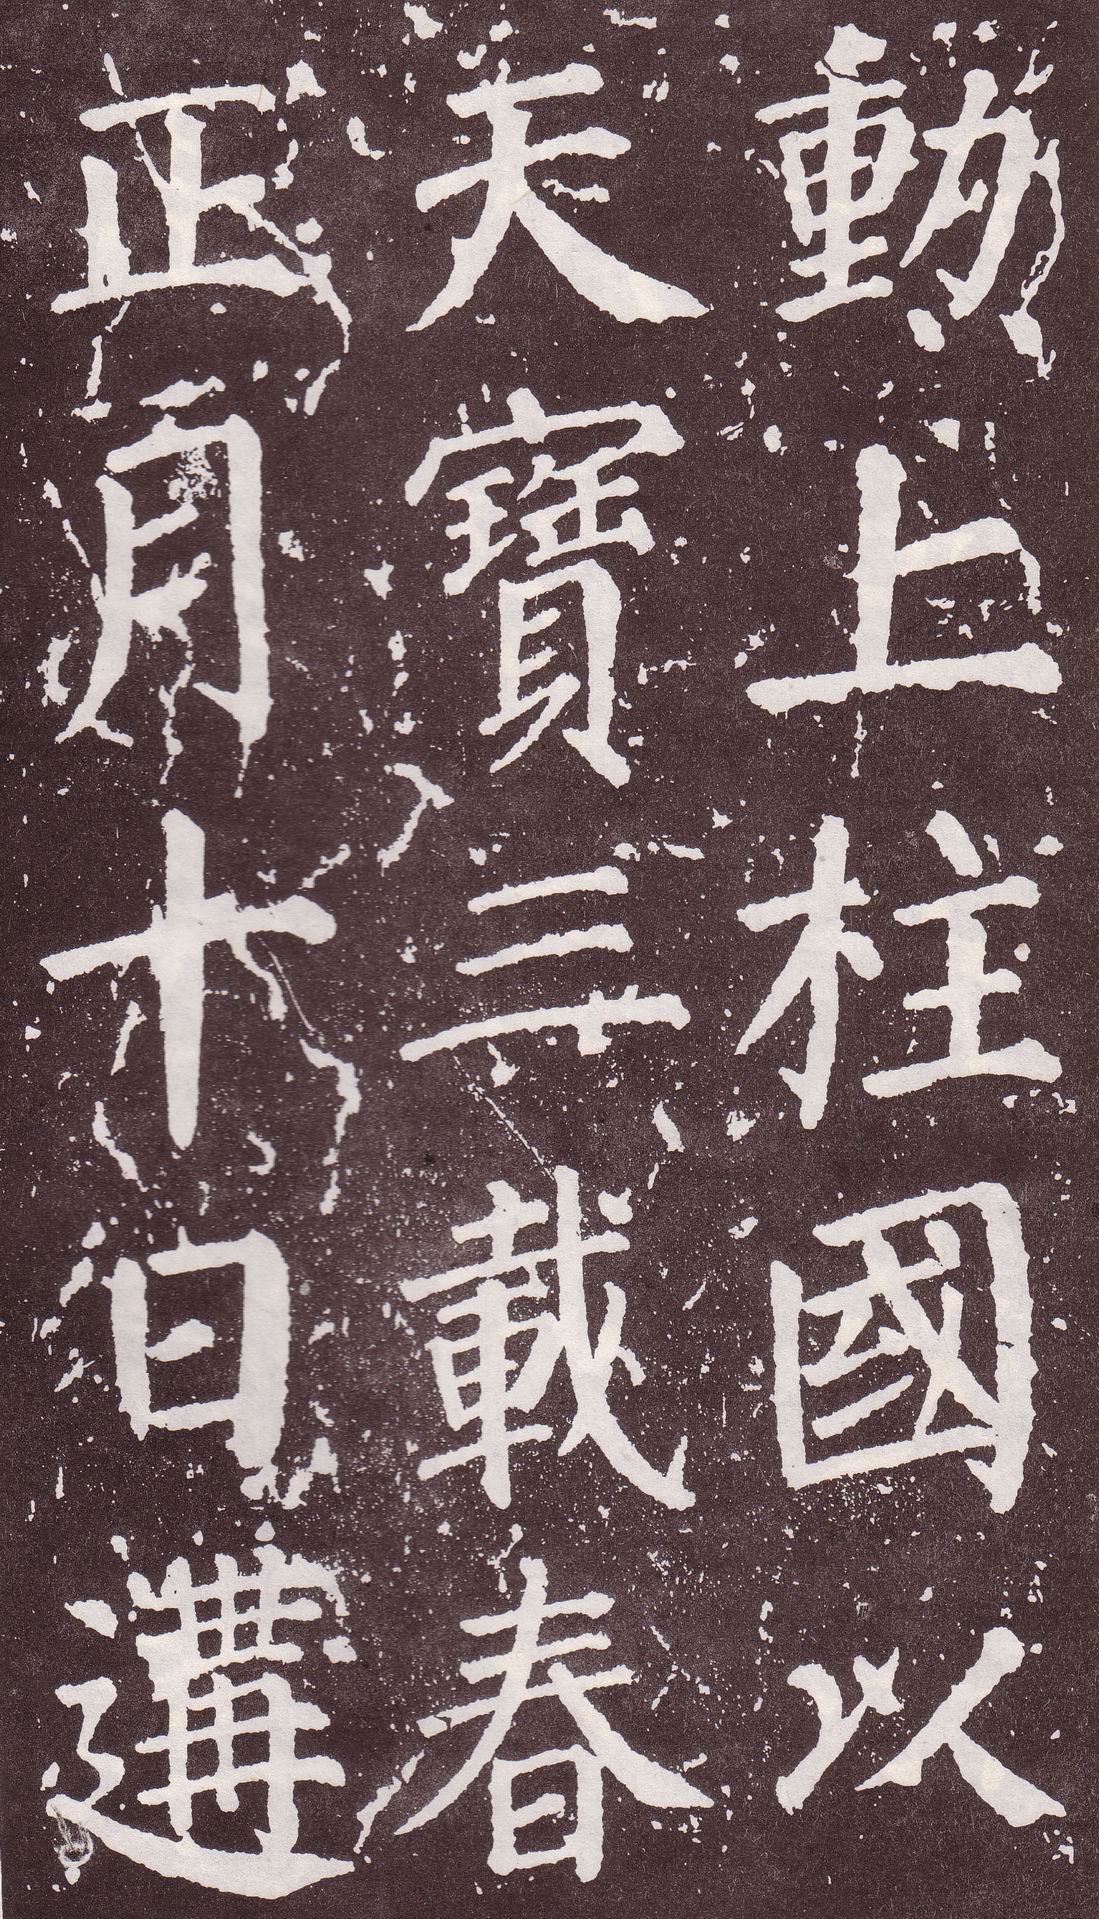 勲上柱國以
天寶三載春
正月十日遘